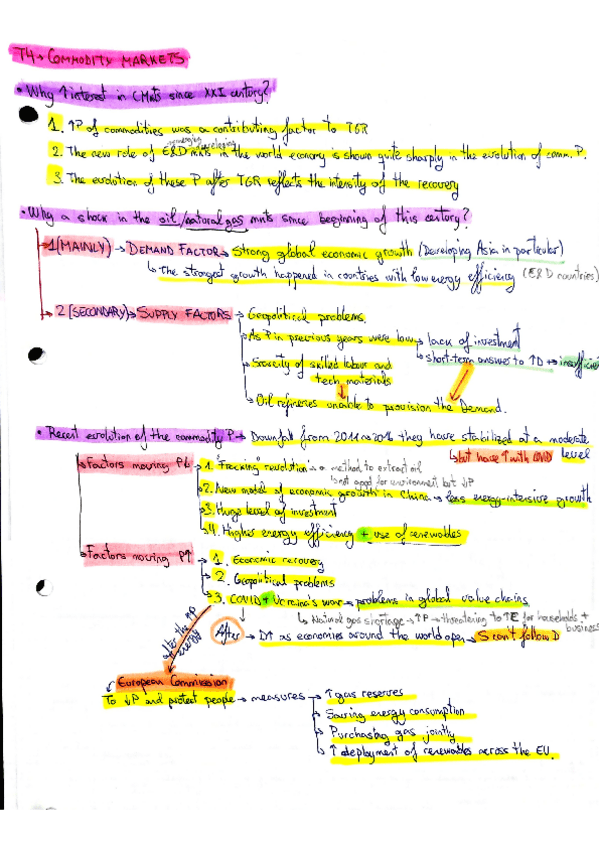 T4→ COMMODITY MARKETS
• Why ↑interest in CMnts since XXI century?
1. ↑P of commodities was a contributing factor to TGR
emerging developing
2. The new role of E&D mnts in the world economy is shown quite sharply in the evolution of comm. P.
3. The evolution of these P after TGR reflects the intensity of the recovery
• Why a shock in the oil/natural gas mnts since beginning of this century?
→1 (MAINLY) → DEMAND FACTORS → Strong global economic growth (Developing Asia in particular)
↳ The strongest growth happened in countries with low energy efficiency (E&D countries)
→ 2 (SECONDARY)→ SUPPLY FACTORS → Geopolitical problems.
→ As P in previous years were low → lack of investment
↳ short-term answer to ↑D → insufficient
→ Scarcity of skilled labour and
tech materials
→ Oil refineries unable to provision the Demand.
• Recent evolution of the commodity P → Downfall from 2011→2016 they have stabilized at a moderate
level
↳ but have ↑ with COVID
→ Factors moving P↓ → 1. "Fracking" revolution → a method to extract oil
↳ not good for environment, but ↓P
→ 2. New model of economic growth in China → less energy-intensive growth
→ 3. Huge level of investment
→ 4. Higher energy efficiency + use of renewables
→ Factors moving P↑ → 1. Economic recovery
→ 2. Geopolitical problems
→ 3. COVID + Ucraina's war → problems in global value chains
↳ Natural gas shortage → ↑P → threatening to ↑E for households +
business
After → D↑ as economies around the world open → S can't follow D
after the ↑P
European Commission
To ↓P and protect people → measures → ↑ gas reserves
→ Saving energy consumption
→ Purchasing gas jointly
→ ↑ deployment of renewables across the EU.